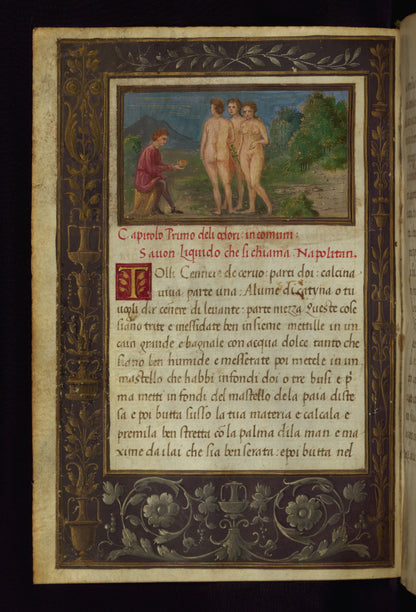 Capitolo Primo deli odori: in comuni:
Savon Liquido che si chiama Napolitan.
TOlli Cenere: de cervo: parti doi: calcina
viva parte una: Alume di catyna o tu
vogli dir cenere di levante: parte mezza queste cose
siano trite e messidate ben insieme mettile in un
cain grande e bagnale con acqua dolce tanto che
siano ben humide e messetate poi metele in un
mastello che habbi in fondi doi o tre busi e p̃
ma metti in fondi del mastello dela paia diste
sa e poi butta susso la tua materia e calcala e
premila ben stretta cõ la palma dila man e ma
xime da i lai che sia ben serata: e poi butta nel